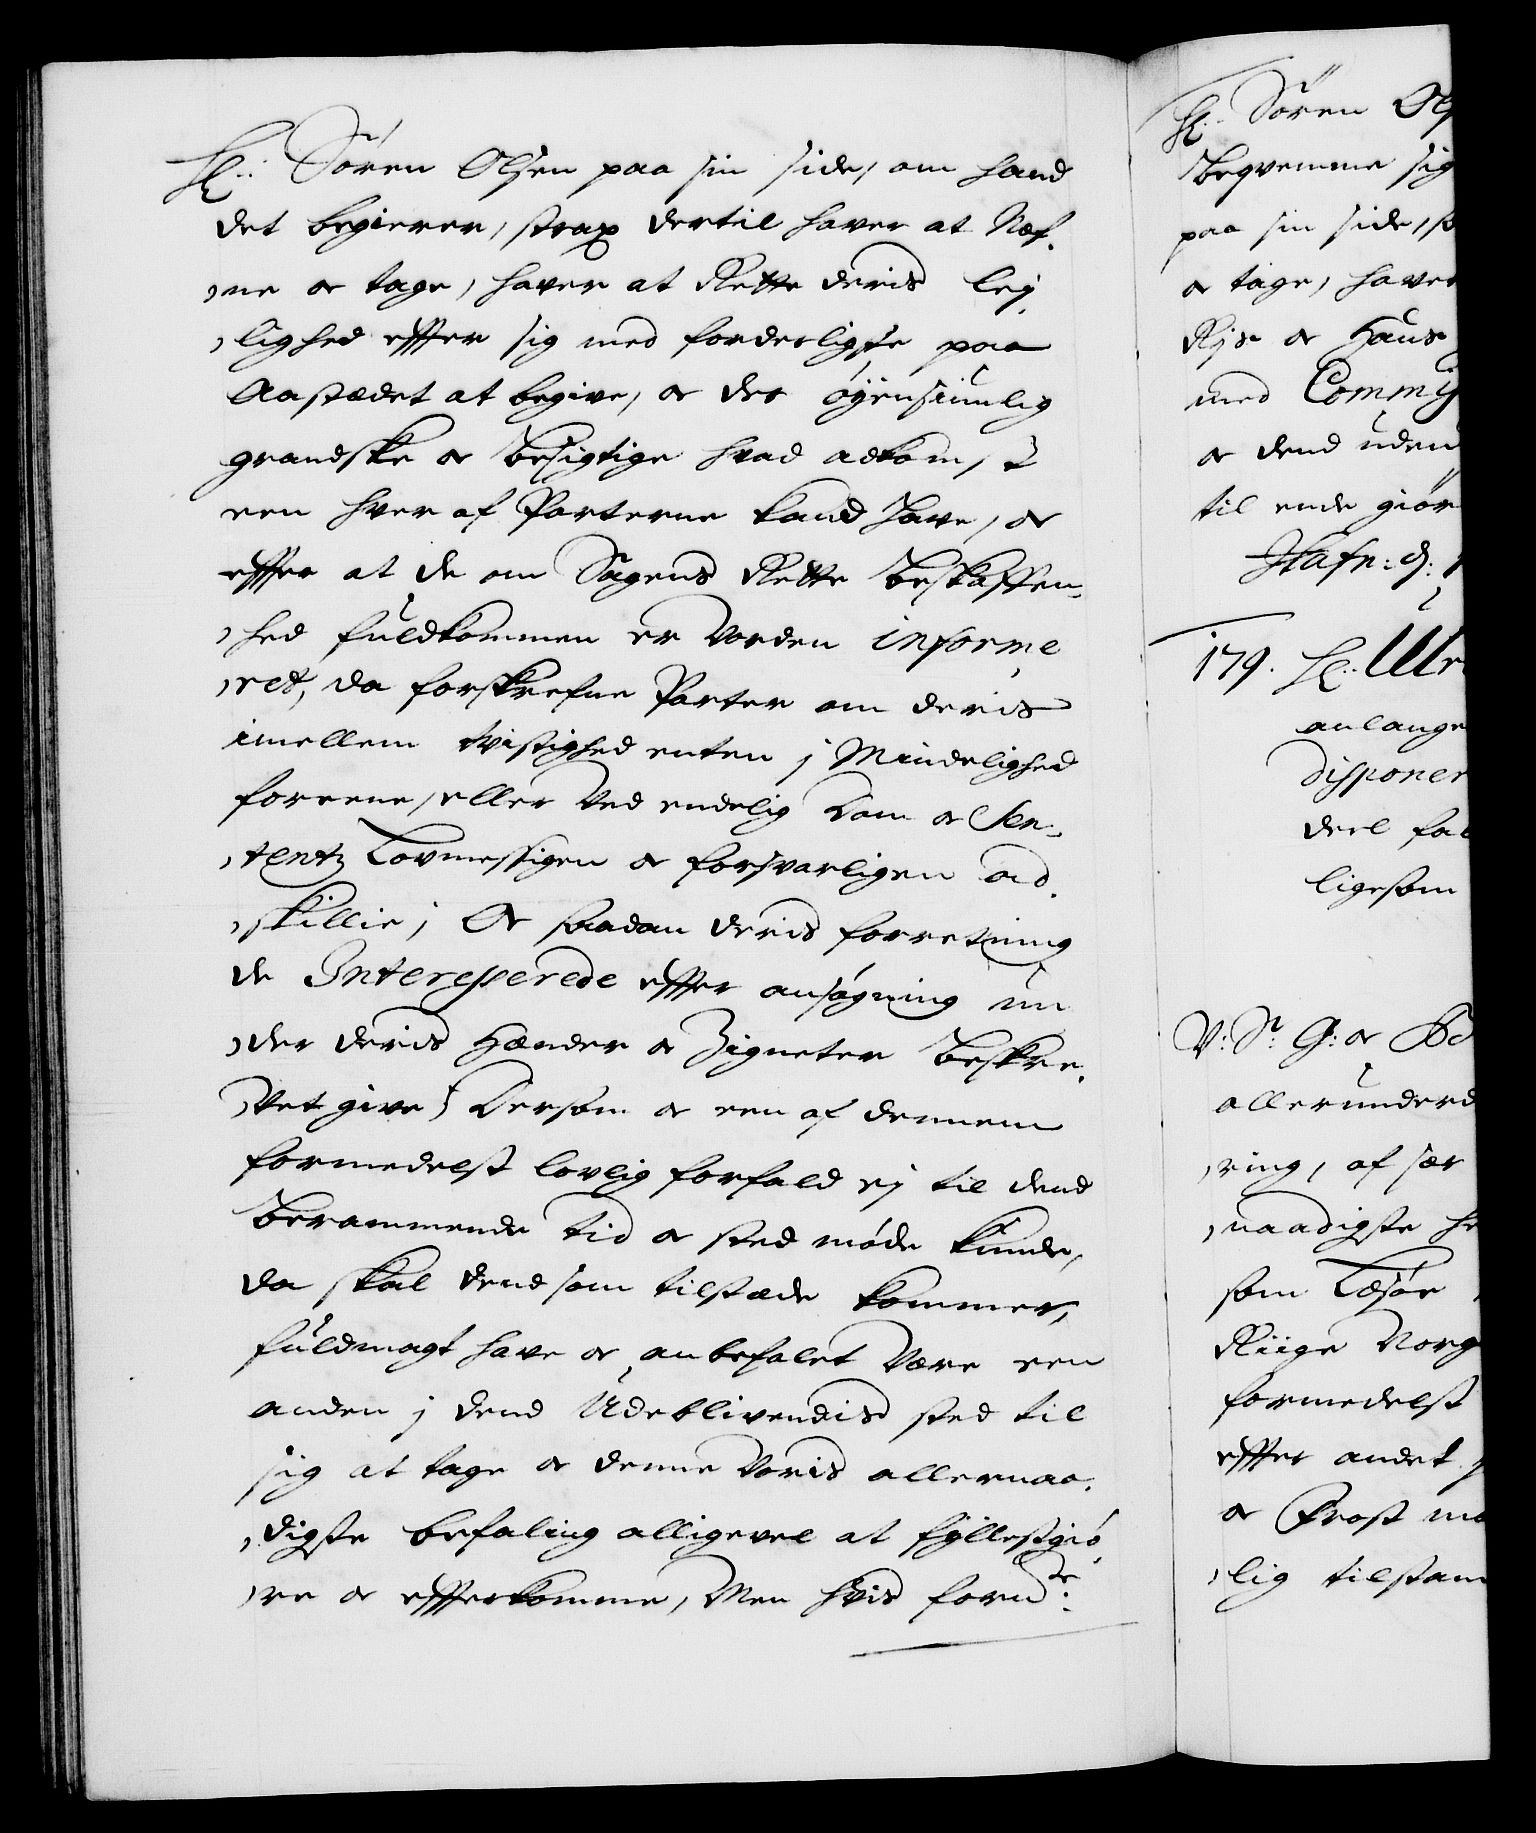 Hr: Søren Olsen paa sin side, om hand
det begierer, strax dertil haver at Næf,
,ne oc tage, haver at Rette deris lej,
,lighed effter sig med forderligste paa
Aastædet at begive, oc der øyensiunlig
grandske oc Besigtige hvad adkomst
een hver af Parterne kand Have, oc
effter at de om Sagens Rette Beskaffen,
,hed fuldkommen er vorden informe
,ret, da forskrefne Parter om deris
imellem tvistighed enten j Mindelighed
foreene, eller ved endelig Dom oc Sen,
,tentz Lovmessigen oc forsvarligen ad,
,skillie; Oc saadan deris forretning
de Interesserede effter ansøgning un
,der deris Hænder oc Zigneter Beskre,
,vet give; Dersom oc een af dennem
formedelst lovlig forfald ej til dend
Berammende tid oc sted møde kunde,
da skal dend som tilstæde kommer,
fuldmagt have oc anbefalet være een
anden j dend Udeblivendis sted til
sig at tage oc denne Voris allernaa,
,digste befaling alligevel at fyllestgiø,
,re oc effterkomme, Men hvis fornte:
Hr: Søren Ols
Beqvemme sig
paa sin side, s
oc tage, haver
Rjs oc Haus
med Commis
oc dend uden
til ende giør
Hafn: d:
179. Hr: Ulr
anlange
disponer
deel fal
ligesom
V: Sr: G: oc
allerunderd
,ring, af sær
,naadigste he
som Læsøe
Riige Norg
formedelst
effter andet
oc Frost
,lig tilstan